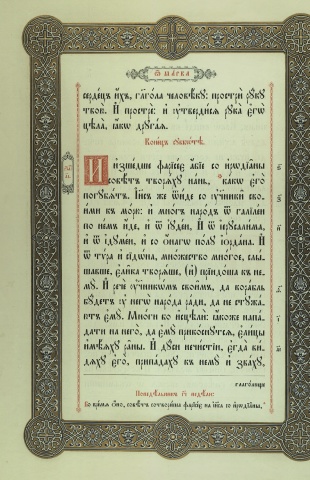 Ѿ МАРКА
сердецъ и҆́хъ, гл҃гола человѣ́кꙋ: прострѝ рꙋ́кꙋ
твою̀. И҆ прострѐ: и҆ ᲂу҆тверди́сѧ рꙋка̀ є҆гѡ̀
цѣла̀, ꙗ҆́кѡ дрꙋга́ѧ.
Коне́цъ сꙋббѡ́тѣ.
И҆ и҆зше́дше фарїсе́є, а҆́бїе со и҆рѡдїа́ны
совѣ́тъ творѧ́хꙋ на́нь, ка́кѡ є҆го̀
погꙋбѧ́тъ. І҆и҃съ же ѿи́де со ᲂу҆чн҃ки̑ свои́-
ми къ мо́рю: и҆ мно́гъ наро́дъ ѿ галїле́и
по не́мъ и҆́де, и҆ ѿ і҆ꙋде́и, И҆ ѿ і҆ерⷭ҇ли́ма,
и҆ ѿ і҆дꙋме́и, и҆ со ѻ҆́нагѡ по́лꙋ і҆ѻрда́на. И҆
ѿ тѵ́ра и҆ сїдѡ́на, мно́жество мно́гое, слы́-
шавше, є҆ли̑ка творѧ́ше, (и҆) прїидо́ша къ не-
мꙋ̀. И҆ речѐ ᲂу҆чн҃кѡ́мъ свои̑мъ, да кора́бль
бꙋ́детъ ᲂу҆ негѡ̀ наро́да ра́ди, да не стꙋжа́-
ютъ є҆мꙋ̀. Мнѡ́ги бо и҆сцѣлѝ: ꙗ҆́коже напа́-
дати на него̀, да є҆мꙋ̀ прикоснꙋ́тсѧ, є҆ли́цы
и҆мѣ́ѧхꙋ ра̑ны. И҆ дꙋ́си нечи́стїи, є҆гда̀ ви́-
дѧхꙋ є҆го̀, припа́дахꙋ къ немꙋ̀ и҆ зва́хꙋ,
глаго́люще
Во вре́мѧ ѻ҆́но, совѣ́тъ сотвори́ша фарїсе́є на і҆и҃са со и҆рѡдїа̑ны,